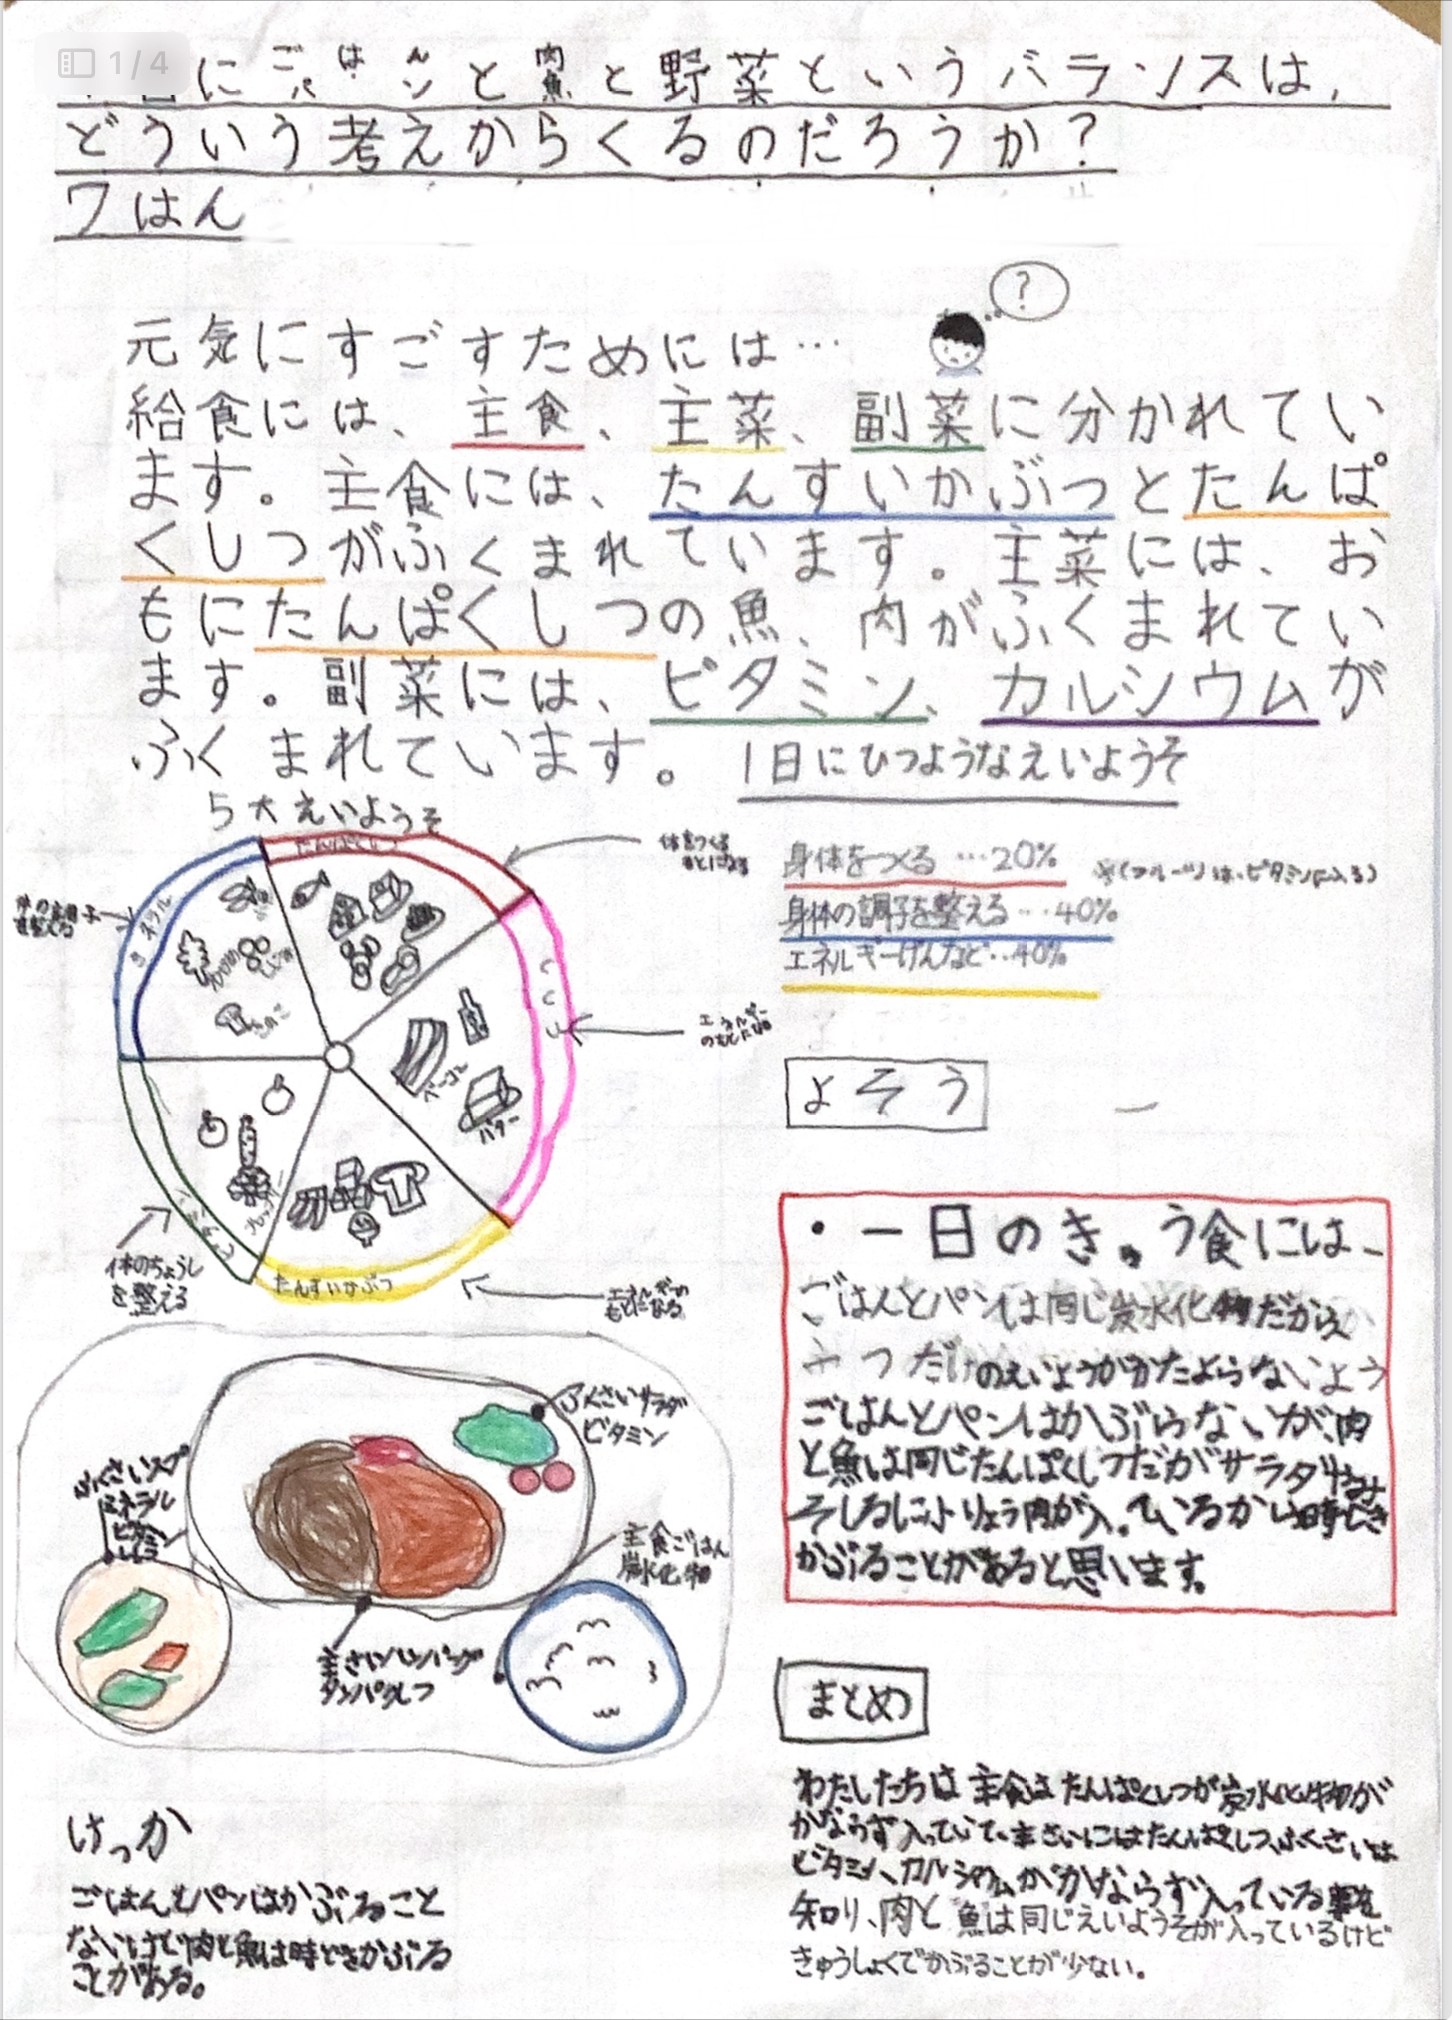 1/4
に ごはん パン と 肉 魚 と野菜というバランスは、
どういう考えからくるのだろうか?
7はん
?
元気にすごすためには…
給食には、主食、主菜、副菜に分かれてい
ます。主食には、たんすいかぶつとたんぱ
くしつがふくまれています。主菜には、お
もにたんぱくしつの魚、肉がふくまれてい
ます。副菜には、ビタミン、カルシウムが
ふくまれています。
1日にひつようなえいようそ
5大えいようそ
たんぱくしつ
体をつくる
もとになる
身体をつくる…20%
※(フルーツ)は、ビタミンに入る)
身体の調子を整える…40%
エネルギーげんなど…40%
ミネラル
を整える
きのこ
ししつ
エネルギー
のもとになる
ベーコン
バター
ビタミン
ブロッコリー
体のちょうし
を整える
たんすいかぶつ
エネルギーの
もとになる
よそう
・一日のきゅう食には、
ごはんとパンは同じ炭水化物だから
つだけのえいようがかたよらないよう
ごはんとパンはかぶらないが、肉
と魚は同じたんぱくしつだがサラダ
しるに少りょう肉が入っているから時どき
かぶることがあると思います。
ふくさいサラダ
ビタミン
ふくさいスープ
ミネラル
ビタミン
主食ごはん
炭水化物
主さいハンバーグ
タンパクしつ
まとめ
わたしたちは主食はたんぱくしつが炭水化物が
かならず入っていて、主さいにはたんぱくしつ、ふくさいは
ビタミン、カルシウムがかならず入っている事を
知り、肉と魚は同じえいようそが入っているけど
きゅうしょくでかぶることが少ない。
けっか
ごはんとパンはかぶること
ないけど肉と魚は時どきかぶる
ことがある。